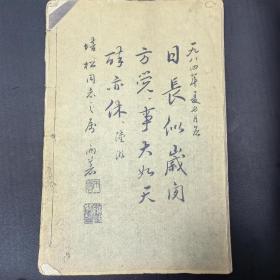 一九八四年夏七月其
日長似歲閑
方覺，事大如天
醉亦休，陸游
培松同志之屬